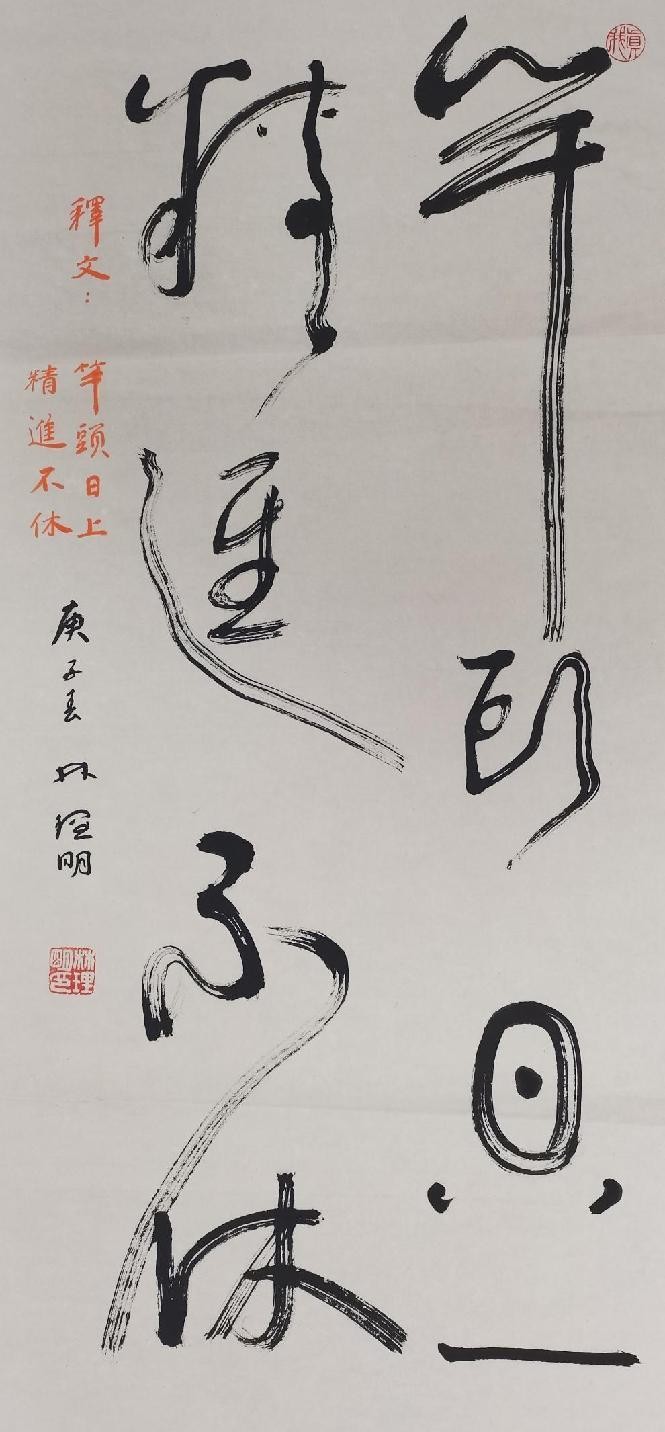 真我
竿頭日上
精進不休
釋文：
竿頭日上
精進不休
庚子春 林理明
林理明印